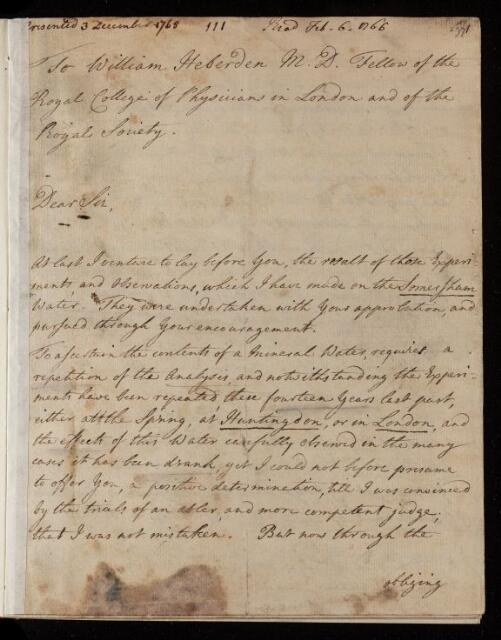 Presented 3 December 1765 111 Read Feb. 6. 1766
To William Heberden M. D. Fellow of the
Royal College of Physicians in London and of the
Royal Society.
Dear Sir,
At last I venture to lay before You, the result of those Experi-
ments and observations, which I have made on the Somersham
Water. They were undertaken with Your approbation, and
pursued through Your encouragement.
To ascertain the contents of a Mineral Water, requires a
repetition of the Analysis, and notwithstanding the Experi-
ments have been repeated these fourteen Years last past,
either at the Spring, at Huntingdon, or in London, and
the effects of this Water carefully observed in the many
cases it has been drank, yet I could not before presume
to offer You, a positive determination, till I was convinced
by the trials of an abler, and more competent judge,
that I was not mistaken. But now through the
obliging